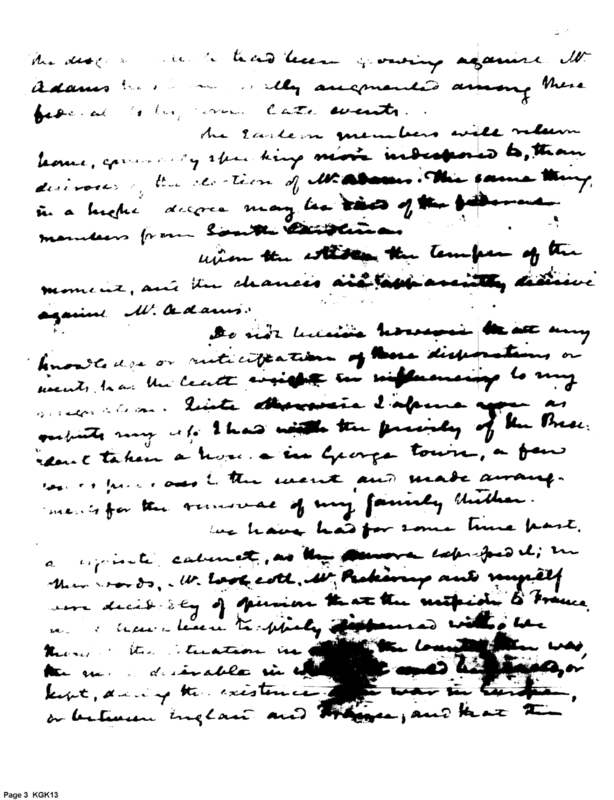 the disg had been growing against Mr.
Adams augmented among these
federal late events.
The Eastern members will return
home, generally speaking more indisposed to, than
desirous of the election of Mr. Adams. The same thing,
in a higher degree may be said of the federal
members from South Carolina
Upon the whole the temper of the
moment, and the chances are apparently decisive
against Mr. Adams.
Do not believe however that any
knowledge or anticipation of these dispositions or
events, has the least weight in influencing to my
resignation. Quite otherwise I assure you as
respects myself I had with the privity of the Presi-
dent taken a house in George town, a few
to the event and made arrang-
ments for the removal of my family thither.
We have had for some time past,
a cabinet, as the expressed it; in
other words, Mr. Wolcott, Mr. Pickering and myself
were decidedly of opinion that the mission to France
have been happily dispensed with; We
the situation in the country then was,
the desirable in could be placed, or
kept, during the existence war in Europe,
or between England and France, and that the
Page 3 KGK13